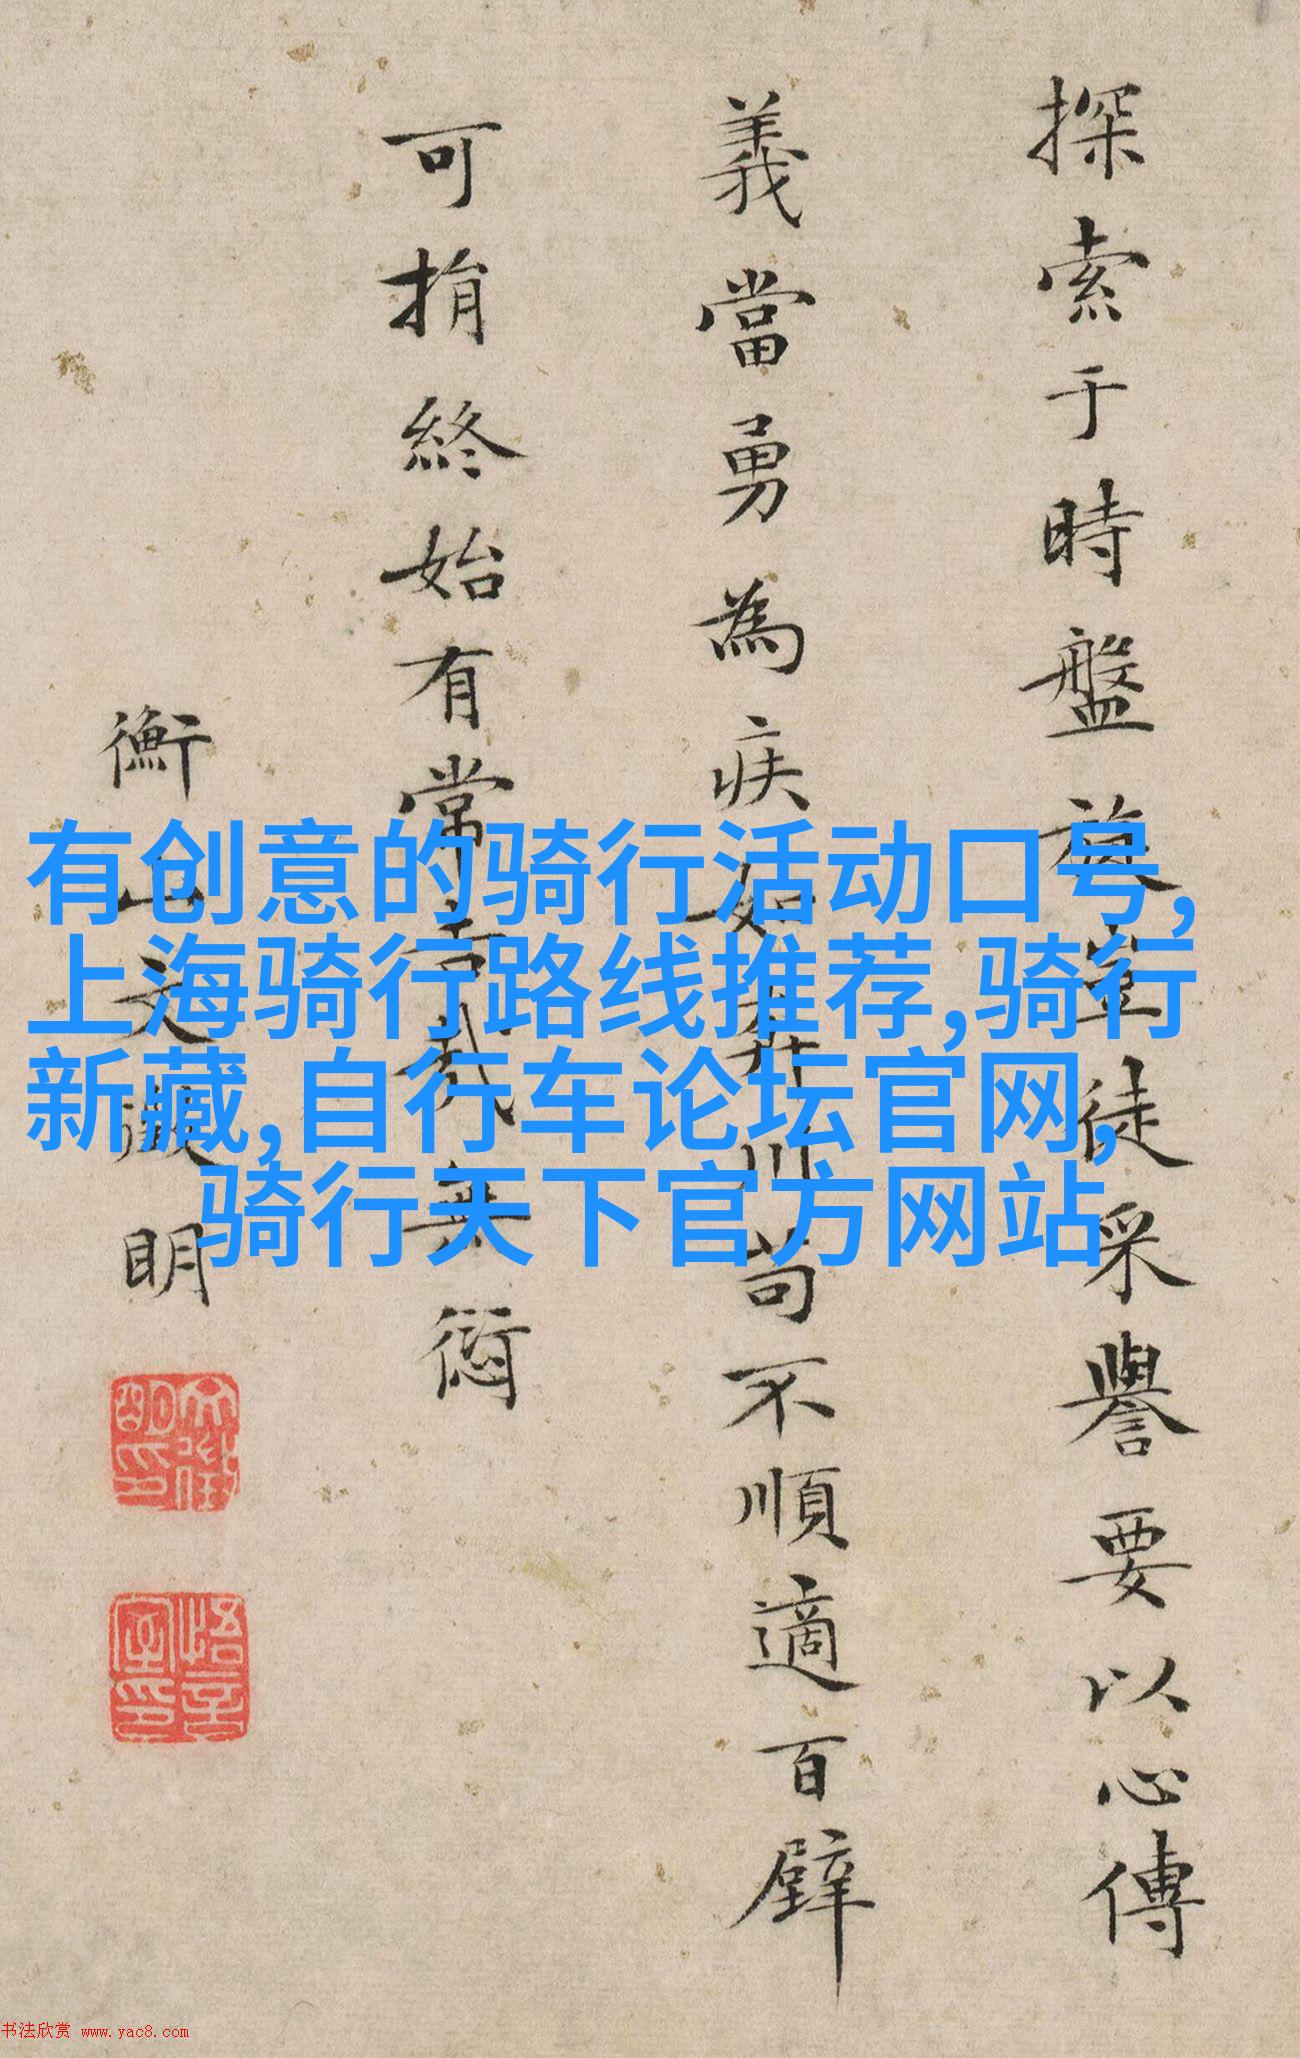 探索于時盤旋豈徒采譽要以心傳
義當勇為疾如弈川苟不順適百
可捐終始有常吉哉無愆
衡山文徵明
有创意的骑行活动口号,
上海骑行路线推荐,骑行
新藏,自行车论坛官网,
骑行天下官方网站
书法欣赏 www.yac8.com